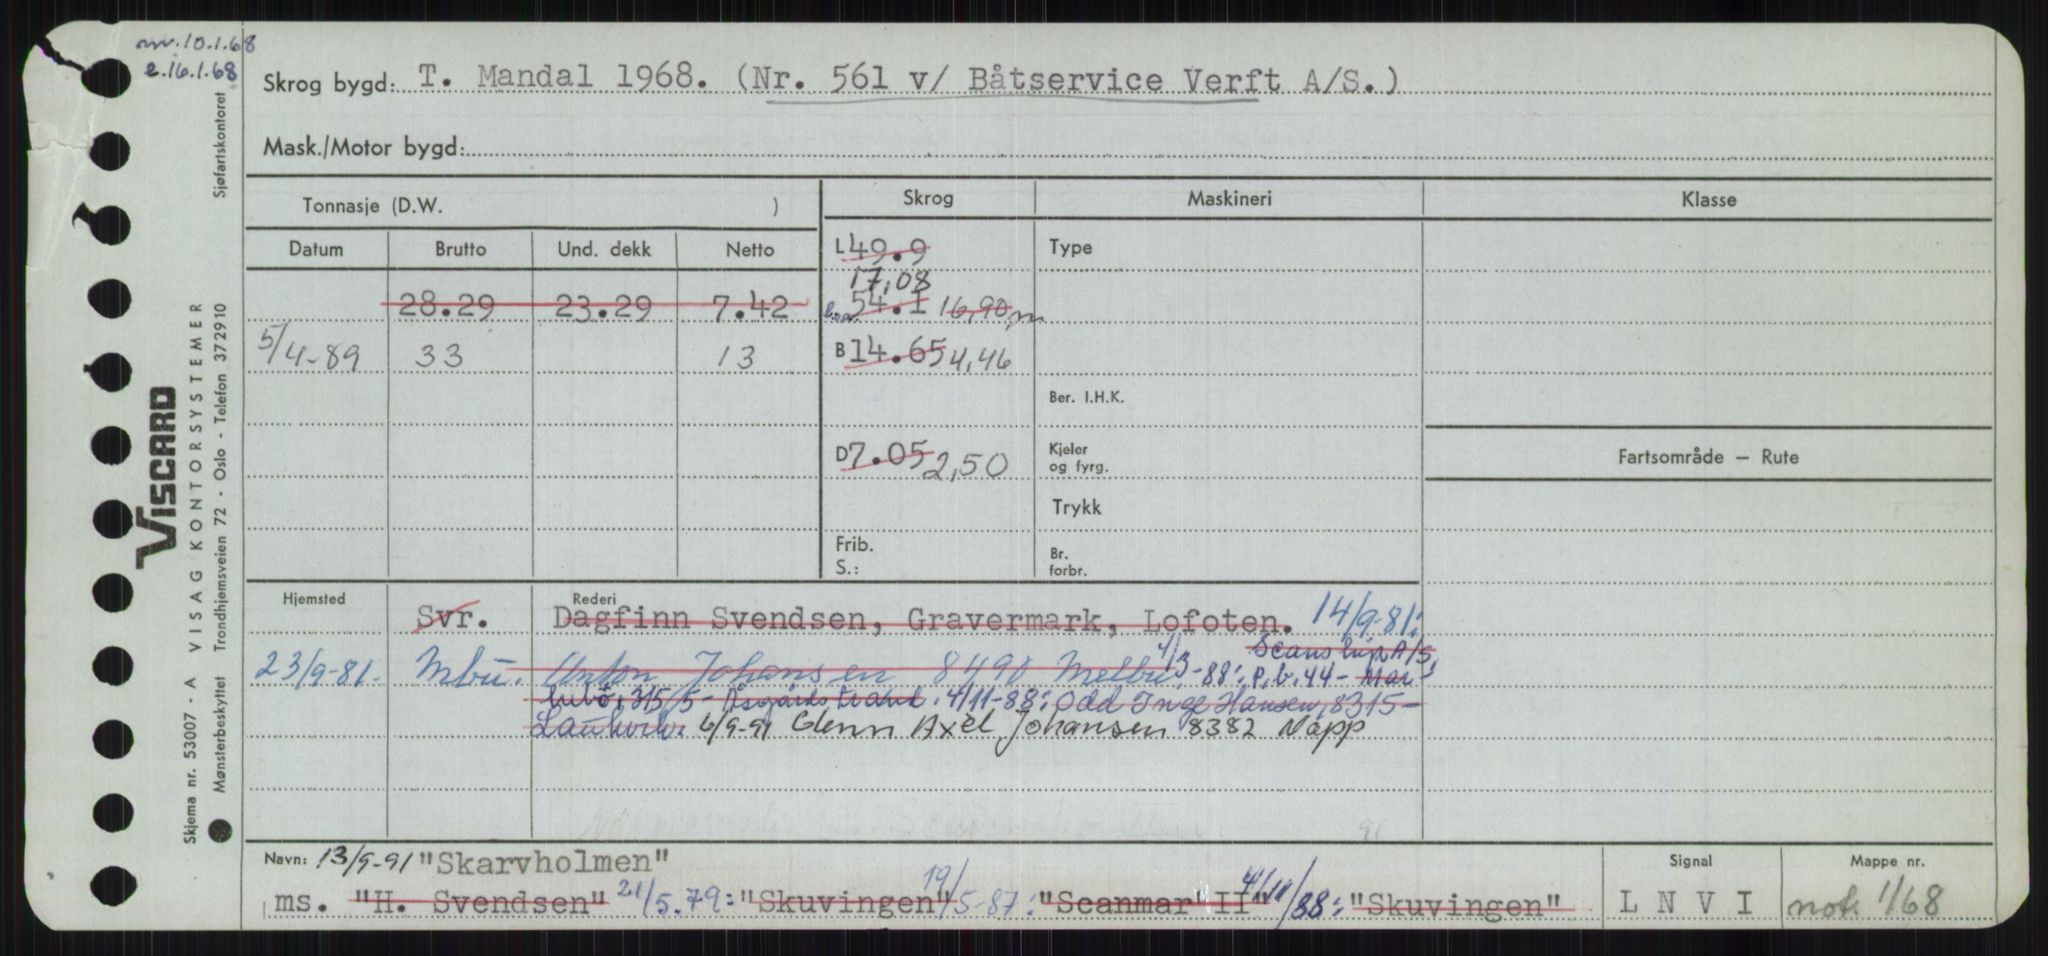 nv. 10.1.68
e.16.1.68
Skrog bygd: T. Mandal 1968. (Nr. 561 v/ Båtservice Verft A/S.)
Mask./Motor bygd:
Tonnasje (D.W. )
Skrog Maskineri Klasse
Datum Brutto Und. dekk Netto
L 49.9 Type
17,08
28.29 23.29 7.42 l.o.a. 54.1 16,90 m
5/4-89 33 13 B 14.65 4,46
Ber. I.H.K.
D 7.05 2,50 Kjeler
og fyrg.
Fartsområde — Rute
Trykk
Frib.
S.:
Br.
forbr.
Hjemsted Rederi
Svr. Dagfinn Svendsen, Gravermark, Lofoten. 14/9-81:
Scanship A/S,
23/9-81. Mbu. Anton Johansen 8490 Melbu. 4/3-88: P.b. 44-
315/5- Åsgårdstrand. 4/11-88: Odd Inge Hansen, 8315-
Laukvik. 6/9-91 Glenn Axel Johansen 8382 Napp
Navn: 13/9-91 "Skarvholmen"
Signal Mappe nr.
ms. "H. Svendsen" 21/5.79: "Skuvingen" 19/5-87: "Scanmar II" 4/11/88: "Skuvingen" L N V I not. 1/68
VISCARD
Skjema nr. 53007 - A VISAG KONTORSYSTEMER
Mønsterbeskyttet Trondhjemsveien 72 - Oslo - Telefon 372910 Sjøfartskontoret